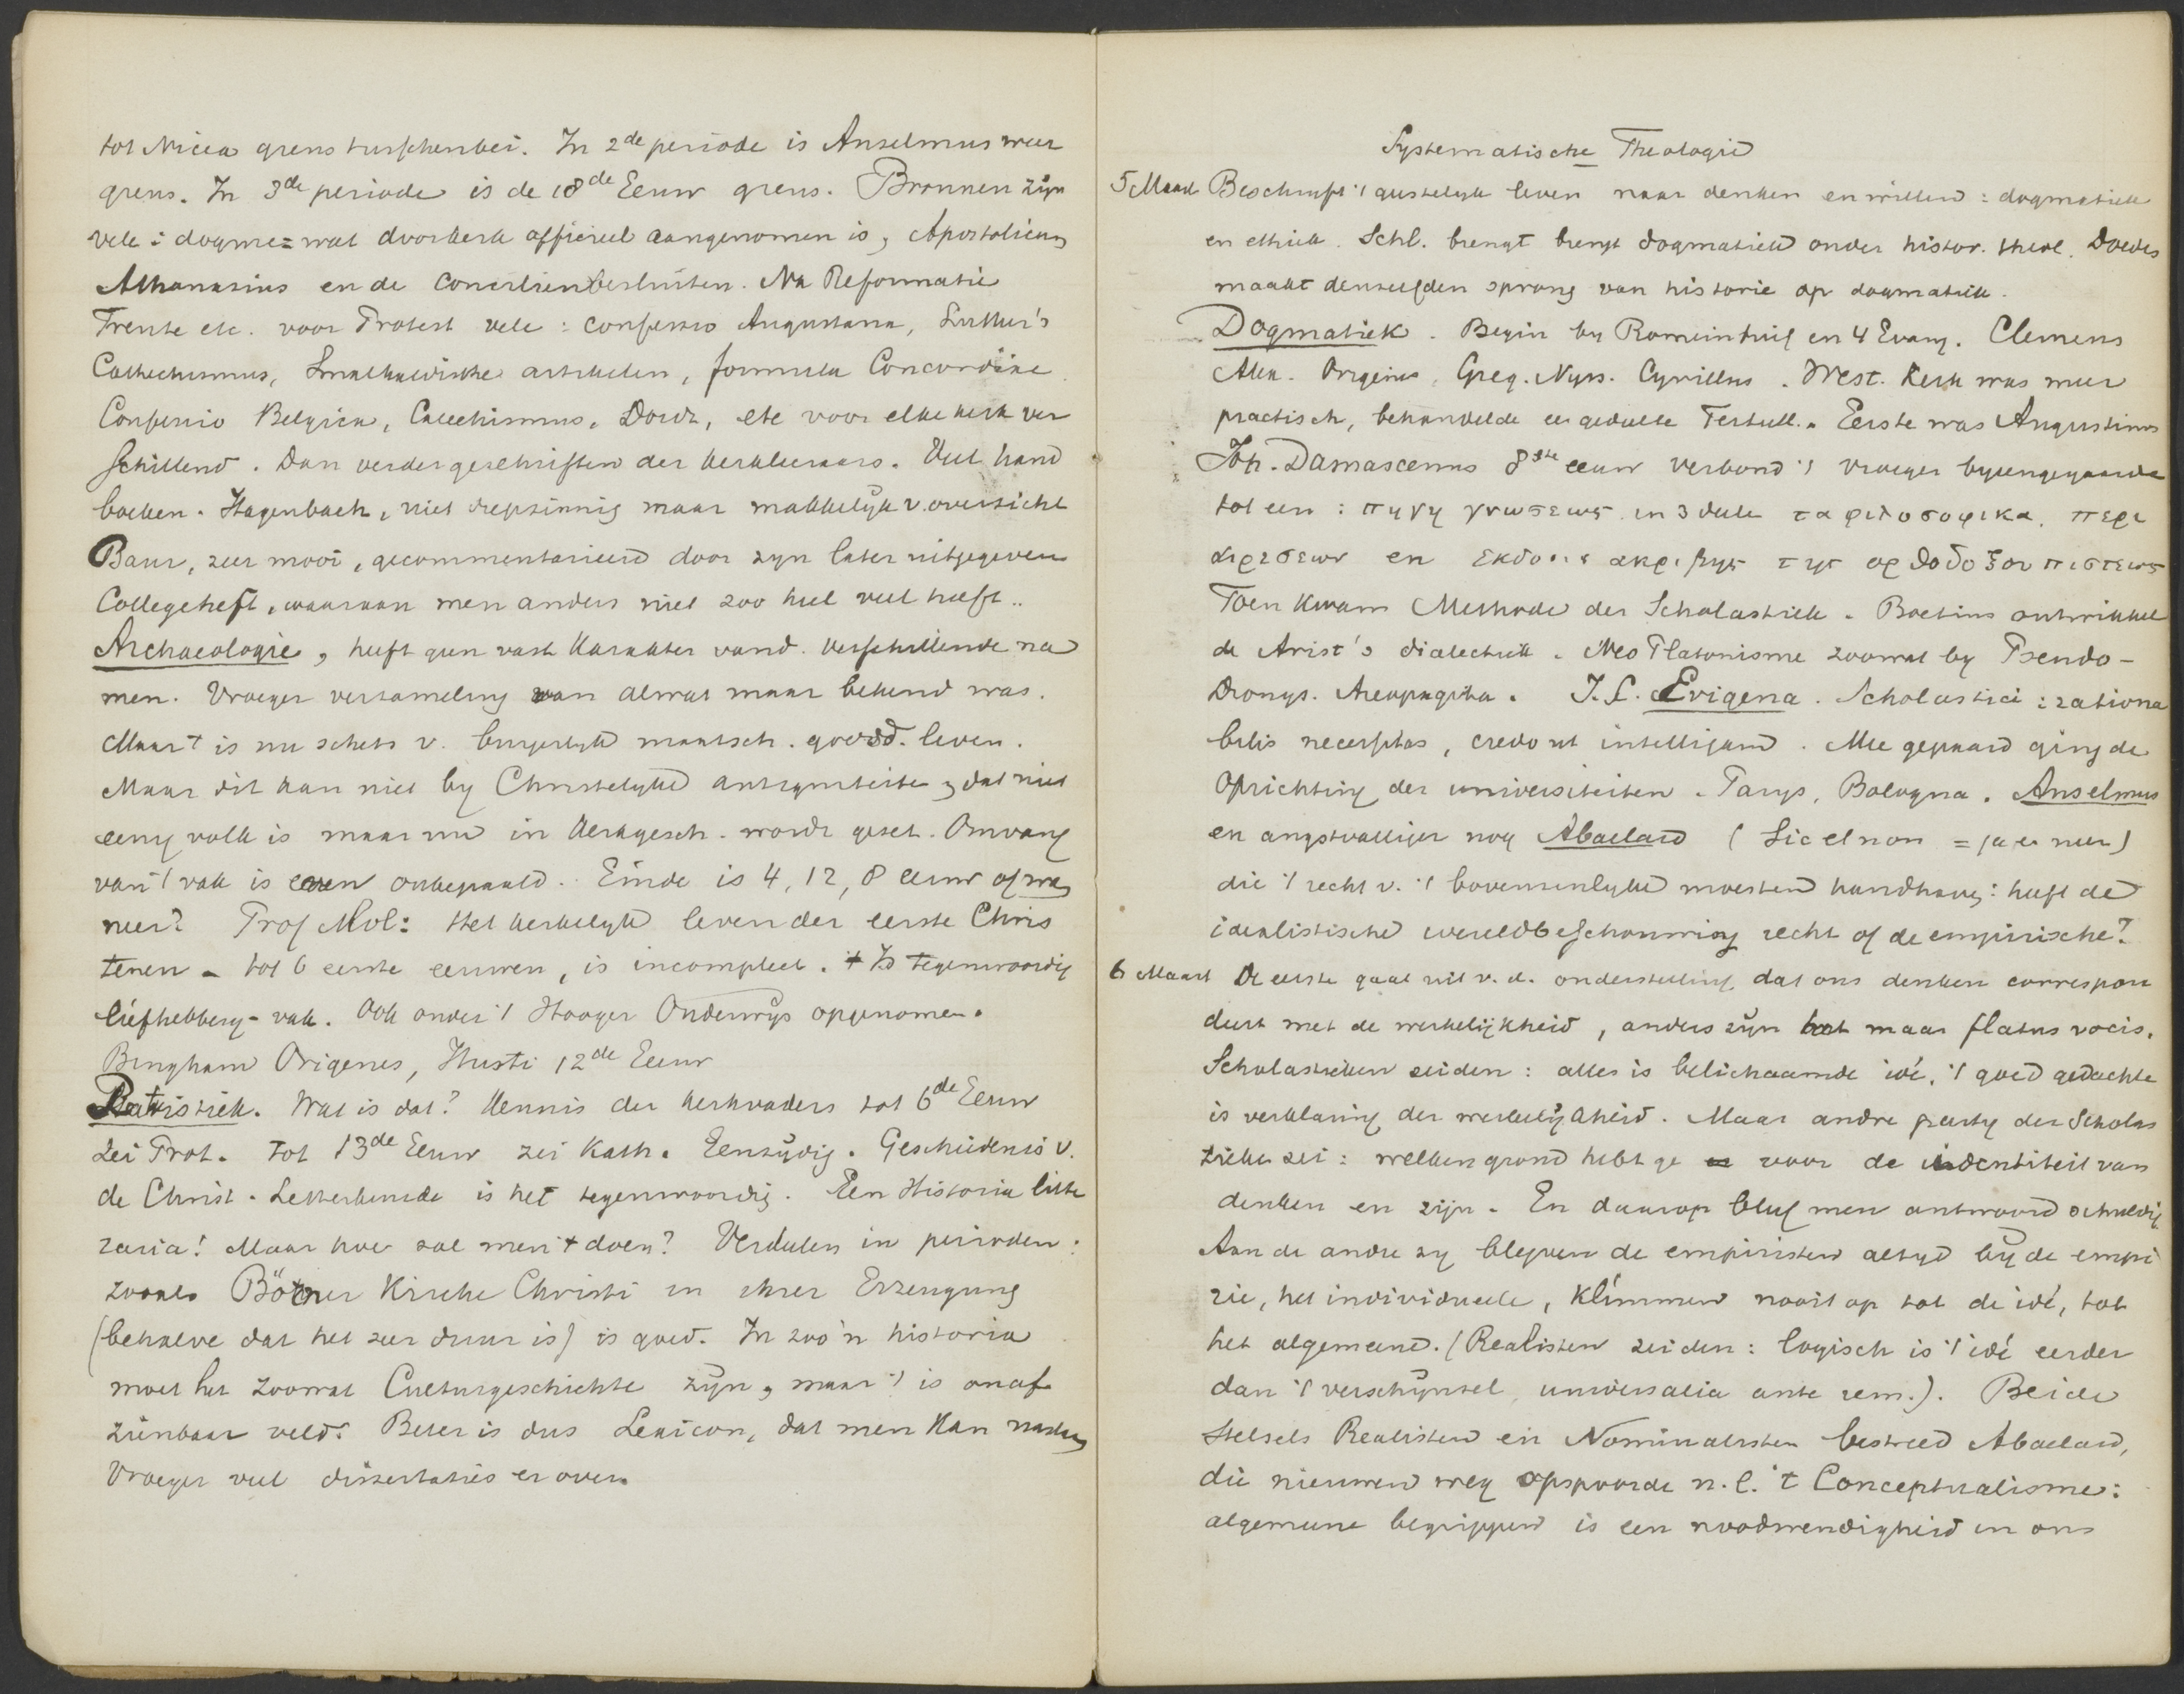 tot Nicea grens tusschenbei. In 2de periode is Anselmus weer
grens. In 3de periode is de 18de Eeuw grens. Bronnen zijn
vele: dogme = wat door kerk officieel aangenomen is, Apostolicum
Athanasius en de Conciliënbesluiten. Na Reformatie
Trente etc. voor Protest vele: confessio Augustana, Luther's
Cathechismus, Smalkaldische artikelen, formula Concordiae
Confessio Belgica, Catechismus, Dordt, etc voor elke kerk ver
schillend. Dan verder geschriften der kerkleeraars. Veel hand
boeken. Hagenbach, niet diepzinnig maar makkelijk v. overzicht
Baur, zeer mooi, gecommentarieerd door zyn later uitgegeven
Collegeheft, waaraan men anders niet zoo heel veel heeft..
Archaeologie, heeft geen vast karakter vand. verschillende na
men. Vroeger verzameling van alwat maar bekend was.
Maar t is nu schets v. burgerlyk maatsch. godsd. leven.
Maar dit kan niet by Christelyke antiquiteiten, dat niet
eenig volk is maar nu in kerkgesch. wordt gezet. Omvang
van 't vak is even onbepaald. Einde is 4, 12, 8 eeuw of wan
neer? Prof Mol: Het kerkelyk leven der eerste Chris
tenen - tot 6 eerste eeuwen, is incompleet. Is tegenwoordig
liefhebbery-vak. Ook onder 't Hooger Onderwys opgenomen.
Bingham Origenes, Husti 12de Eeuw
Patristiek. Wat is dat? Kennis der kerkvaders tot 6de Eeuw
zei Prot. tot 13de Eeuw zei Kath. Eenzijdig. Geschiedenis v.
de Christ. Letterkunde is het tegenwoordig. Een Historia litte
raria! Maar hoe zal men 't doen? Verdeelen in perioden:
zooals Böhner Kirche Christi in ihrer Erzeugung
(behalve dat het zeer duur is) is goed. In zoo'n historia
moet het zoowat Culturgeschichte zijn, maar 't is onaf
zienbaar veld. Beter is dus Lexicon, dat men kan naslaan
Vroeger veel dissertaties er over.
Systematische Theologie
5 Maart Beschryft 't geestelyk leven naar denken en willen: dogmatiek
en ethiek. Schl. brengt brengt dogmatiek onder histor. theol. Doedes
maakt denzelfden sprong van historie op dogmatiek.
Dogmatiek. Begin by Romeinbrief en 4 Evang. Clemens
Alex. Origenes, Greg. Nyss. Cyrillus. West. Kerk was meer
practisch, behandelde een gedeelte Tertull. Eerste was Augustinus
Joh. Damascenus 8ste eeuw verbond 't vroeger byeengegaarde
tot een: πηγη γνωσεως in 3 deele τα φιλοσοφικα, περι
αιρεσεων en εκδοσις ακριβης της ορθοδοξου πιστεως
Toen kwam Methode der Scholastiek. Boetius ontwikkel
de Arist's dialectiek. Neo Platonisme zoowat by Pseudo-
Dionys. Areopagita. J.S. Erigena. Scholastici: rationa
bilis necessitas, credo ut intelligam. Mee gepaard ging de
Oprichting der universiteiten. Parys, Bologna. Anselmus
en angstvalliger nog Abaelard (Sic et non = ja en neen)
die 't recht v. 't bovenzinlyke moesten handhaven: heeft de
idealistische wereldbeschouwing recht of de empirische?
6 Maart De eerste gaat uit v. d. onderstelling dat ons denken correspon
deert met de werkelijkheid, anders zijn het maar flatus vocis.
Scholastieken zeiden: alles is belichaamde idé, 't goed gedachte
is verklaring der werkelijkheid. Maar andre party der Scholas
tieken zei: welken grond hebt ge voor de identiteit van
denken en zijn. En daarop bleef men antwoord schuldig
Aan de andre zy bleven de empiristen altyd bij de empi
rie, het individueele, klimmen nooit op tot de idé, tot
het algemeene. (Realisten zeiden: logisch is 't idé eerder
dan 't verschijnsel, universalia ante rem.). Beide
stelsels Realisten en Nominalisten bestreed Abaelard,
die nieuwen weg opspoorde n.l. 't Conceptualisme:
algemeene begrippen is een noodwendigheid in ons